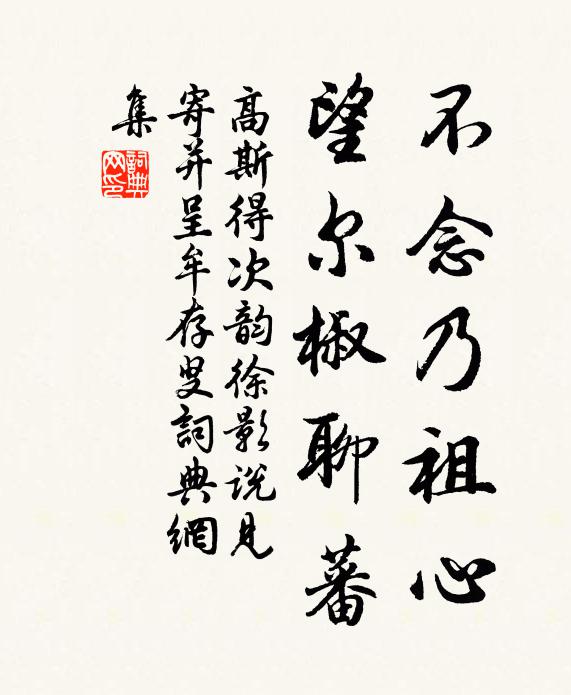 不念乃祖心
望尔椒聊蕃
高斯得次韵徐影说見
寄并呈牟存叟詞典網
集
詞典网印